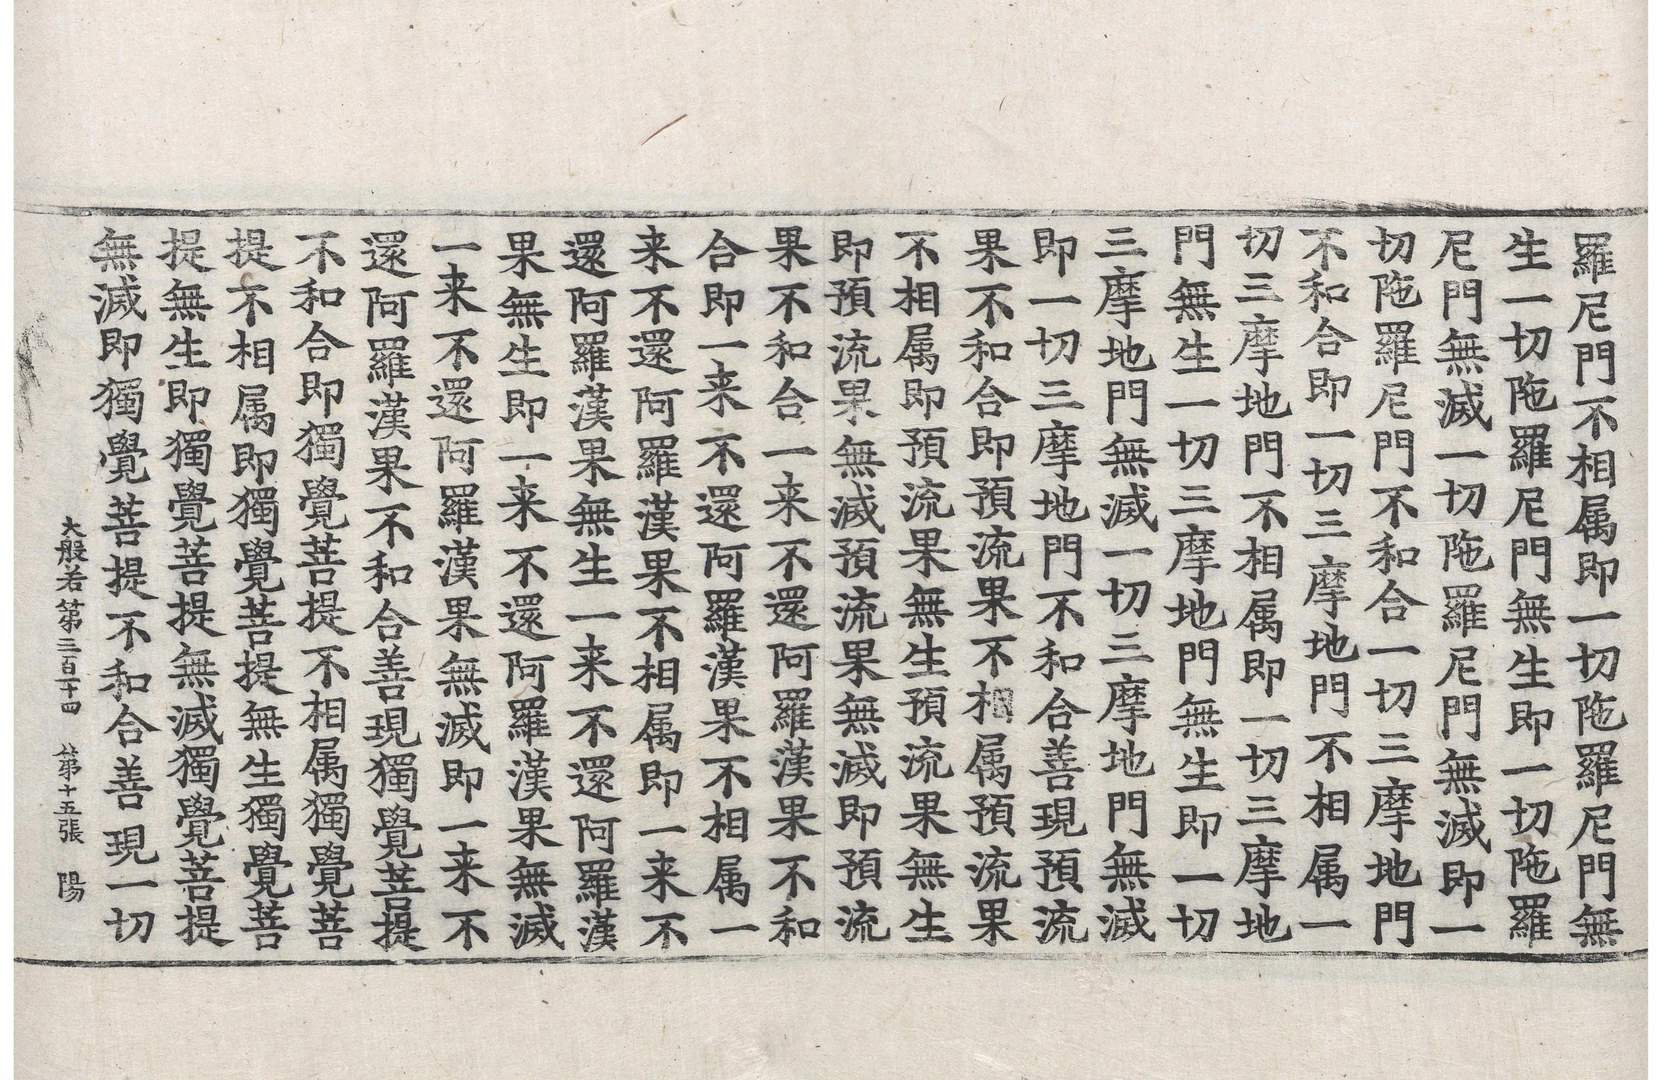 羅尼門不相属即一切陁羅尼門無
生一切陁羅尼門無生即一切陁羅
尼門無滅一切陁羅尼門無滅即一
切陁羅尼門不和合一切三摩地門
不和合即一切三摩地門不相属一
切三摩地門不相属即一切三摩地
門無生一切三摩地門無生即一切
三摩地門無滅一切三摩地門無滅
即一切三摩地門不和合善現預流
果不和合即預流果不相属預流果
不相属即預流果無生預流果無生
即預流果無滅預流果無滅即預流
果不和合一来不還阿羅漢果不和
合即一来不還阿羅漢果不相属一
来不還阿羅漢果不相属即一来不
還阿羅漢果無生一来不還阿羅漢
果無生即一来不還阿羅漢果無滅
一来不還阿羅漢果無滅即一来不
還阿羅漢果不和合善現獨覺菩提
不和合即獨覺菩提不相属獨覺菩
提不相属即獨覺菩提無生獨覺菩
提無生即獨覺菩提無滅獨覺菩提
無滅即獨覺菩提不和合善現一切
大般若第三百十四 第十五張 陽